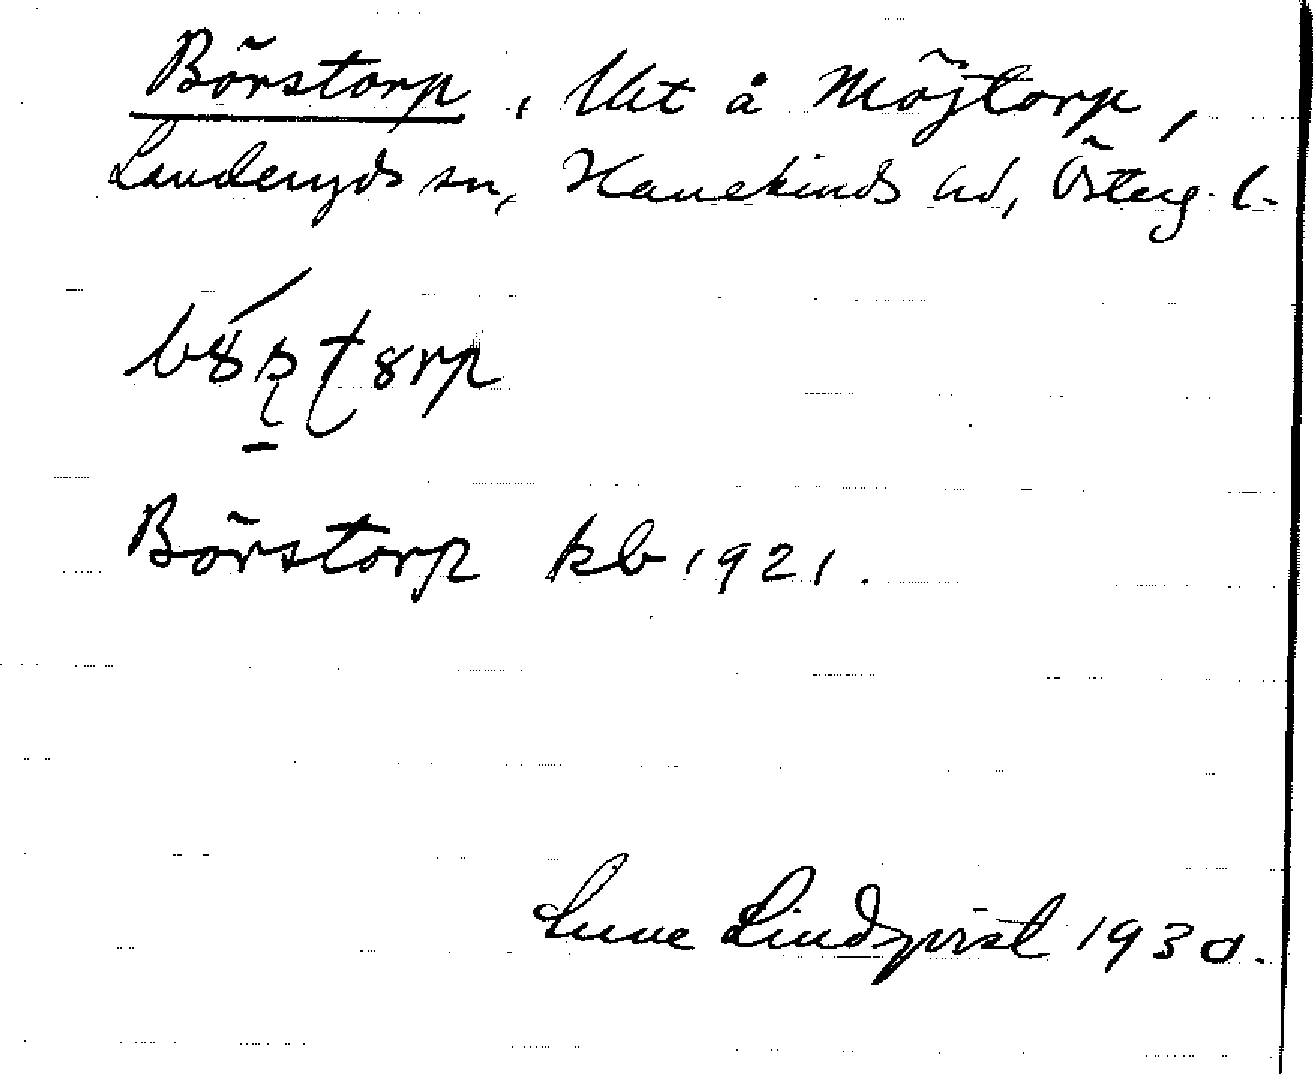 Börstorp, lht å Möjtorp,
Landeryds sn, Hanekinds hd, Österg. l.
Börstorp kb 1921.
Sune Lindqvist 1930.